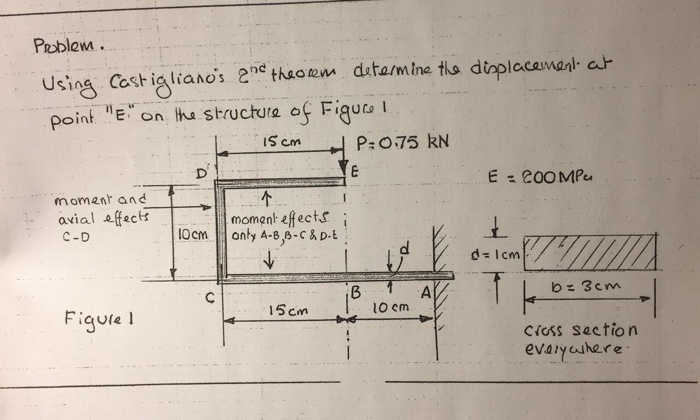 Problem.
Using Castigliano's 2nd theorem determine the displacement at
point "E" on the structure of Figure 1
15 cm
P=0.75 kN
D
E
E = 200MPa
moment and
axial effects
C-D
10cm
moment effects
only A-B, B-C & D-E
d
d = 1cm
C
B
A
b = 3cm
15cm
10 cm
Figure 1
cross section
everywhere